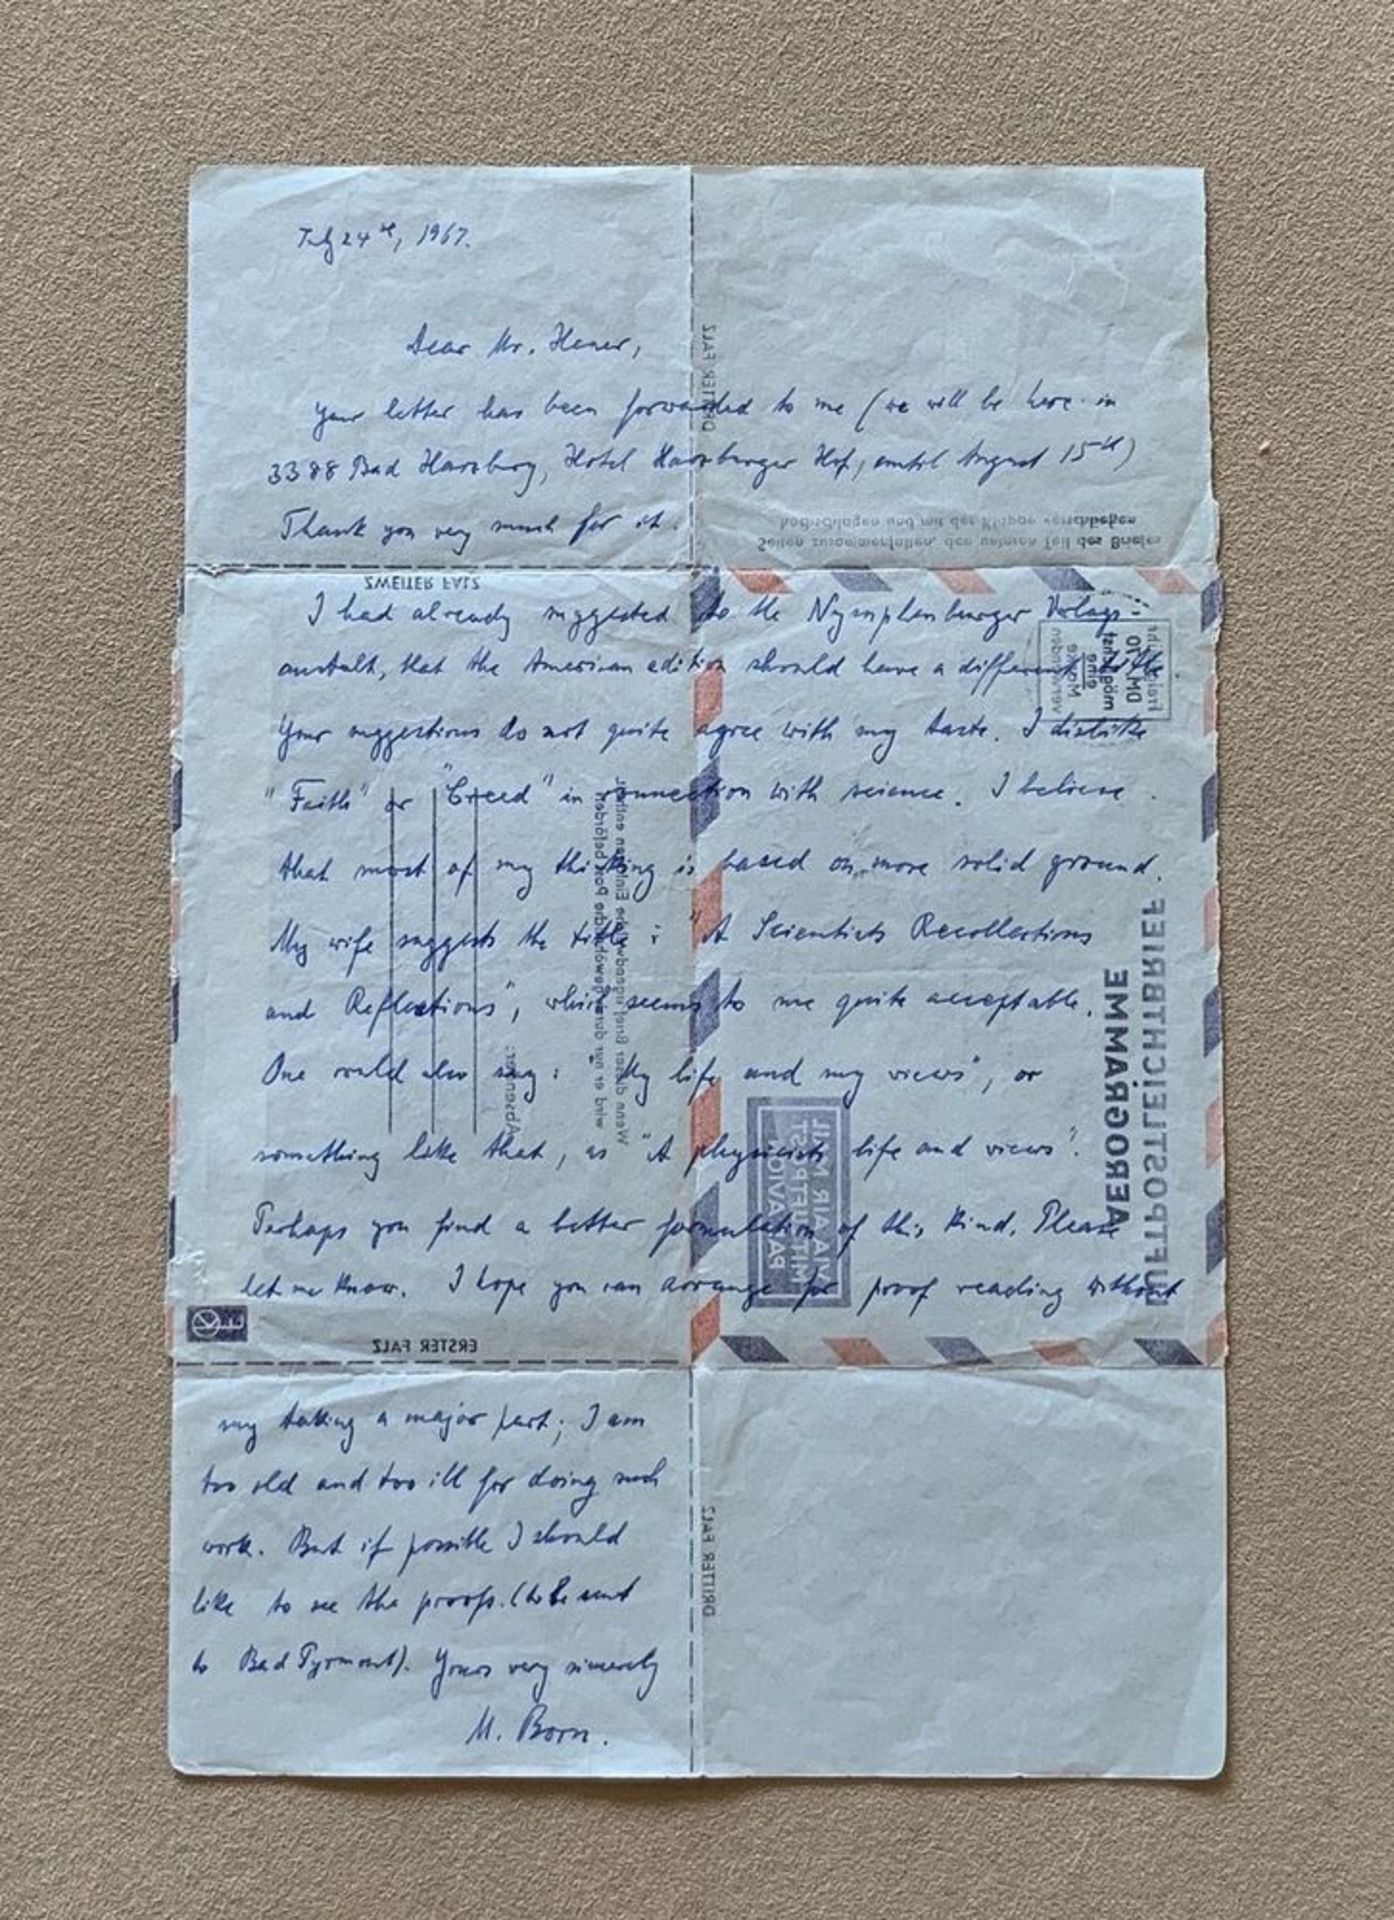 July 24th, 1967.
Dear Mr. Hener,
Your letter has been forwarded to me (we will be here in
3388 Bad Harzburg, Hotel Harzburger Hof, until August 15th)
Thank you very much for it.
I had already suggested to the Nymphenburger Verlags-
anstalt, that the American edition should have a different title
Your suggestions do not quite agree with my taste. I dislike
"Faith" or "Creed" in connection with science. I believe
that most of my thinking is based on more solid ground.
My wife suggests the title: "A Scientists Recollections
and Reflections", which seems to me quite acceptable.
One could also say: "My life and my views", or
something like that, as "A physicists life and views".
Perhaps you find a better formulation of this kind. Please
let me know. I hope you can arrange for proof reading without
my taking a major part; I am
too old and too ill for doing such
work. But if possible I should
like to see the proofs. (to be sent
to Bad Pyrmont). Yours very sincerely
M. Born.
DRITTER FALZ
Seiten zusammenfalten, den unteren Teil des Briefes
hochschlagen und mit der Klappe verschließen
ZWEITER FALZ
möglichst
eine
Marke
verwenden
LUFTPOSTLEICHTBRIEF
AEROGRAMME
VIA AIR MAIL
MIT LUFTPOST
PAR AVION
Absender:
Wenn dieser Brief irgendwelche Einlagen enthält,
wird er nur auf gewöhnlichem Postbefördert
ERSTER FALZ
DRITTER FALZ